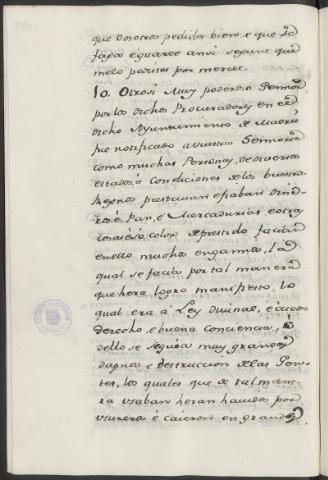 que vosotros pedides bien e que se
faga e guarde ansi segunt que
melo pedistes por mercet.
10. Otrosi Muy poderoso Sennor
por los dichos Procuradores en el
dicho Ayuntamiento de Madrit
fue notificado a vuestra Sennoria
como muchas Personas, de diversos
estados, é Condiciones de los vuestros
Regnos prestavan é fiaban dine
ros é Pan, é Mercadurias e otras
cosas é so color de prestido facian
en ello muchos engannos, la
qual se facia por tal manera
que hera logro manifiesto, lo
qual era á Ley Divinal, é á todo
derecho, e buena conciencia,
dello se seguia muy grandes
dapnos e destruccion de las Gen-
tes, los quales que de tal mane-
ra usaban heran havidos por
usureros é caieron en grandes